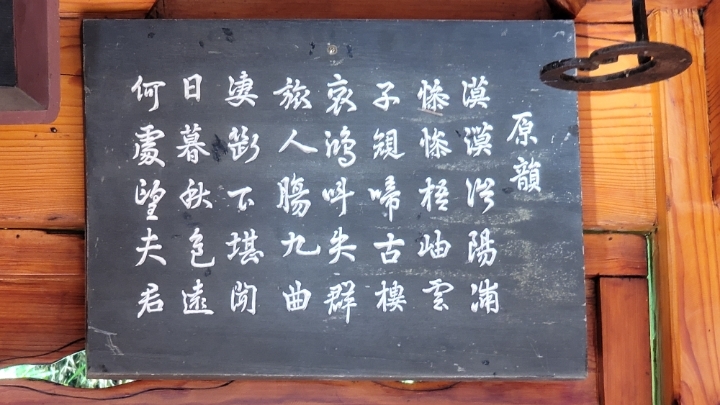 原韻
漠漠涔陽浦
慘慘梧岫雲
子規啼古樓
哀鴻叫失群
旅人膓九曲
凄斷不堪聞
日暮秋色遠
何處望夫君